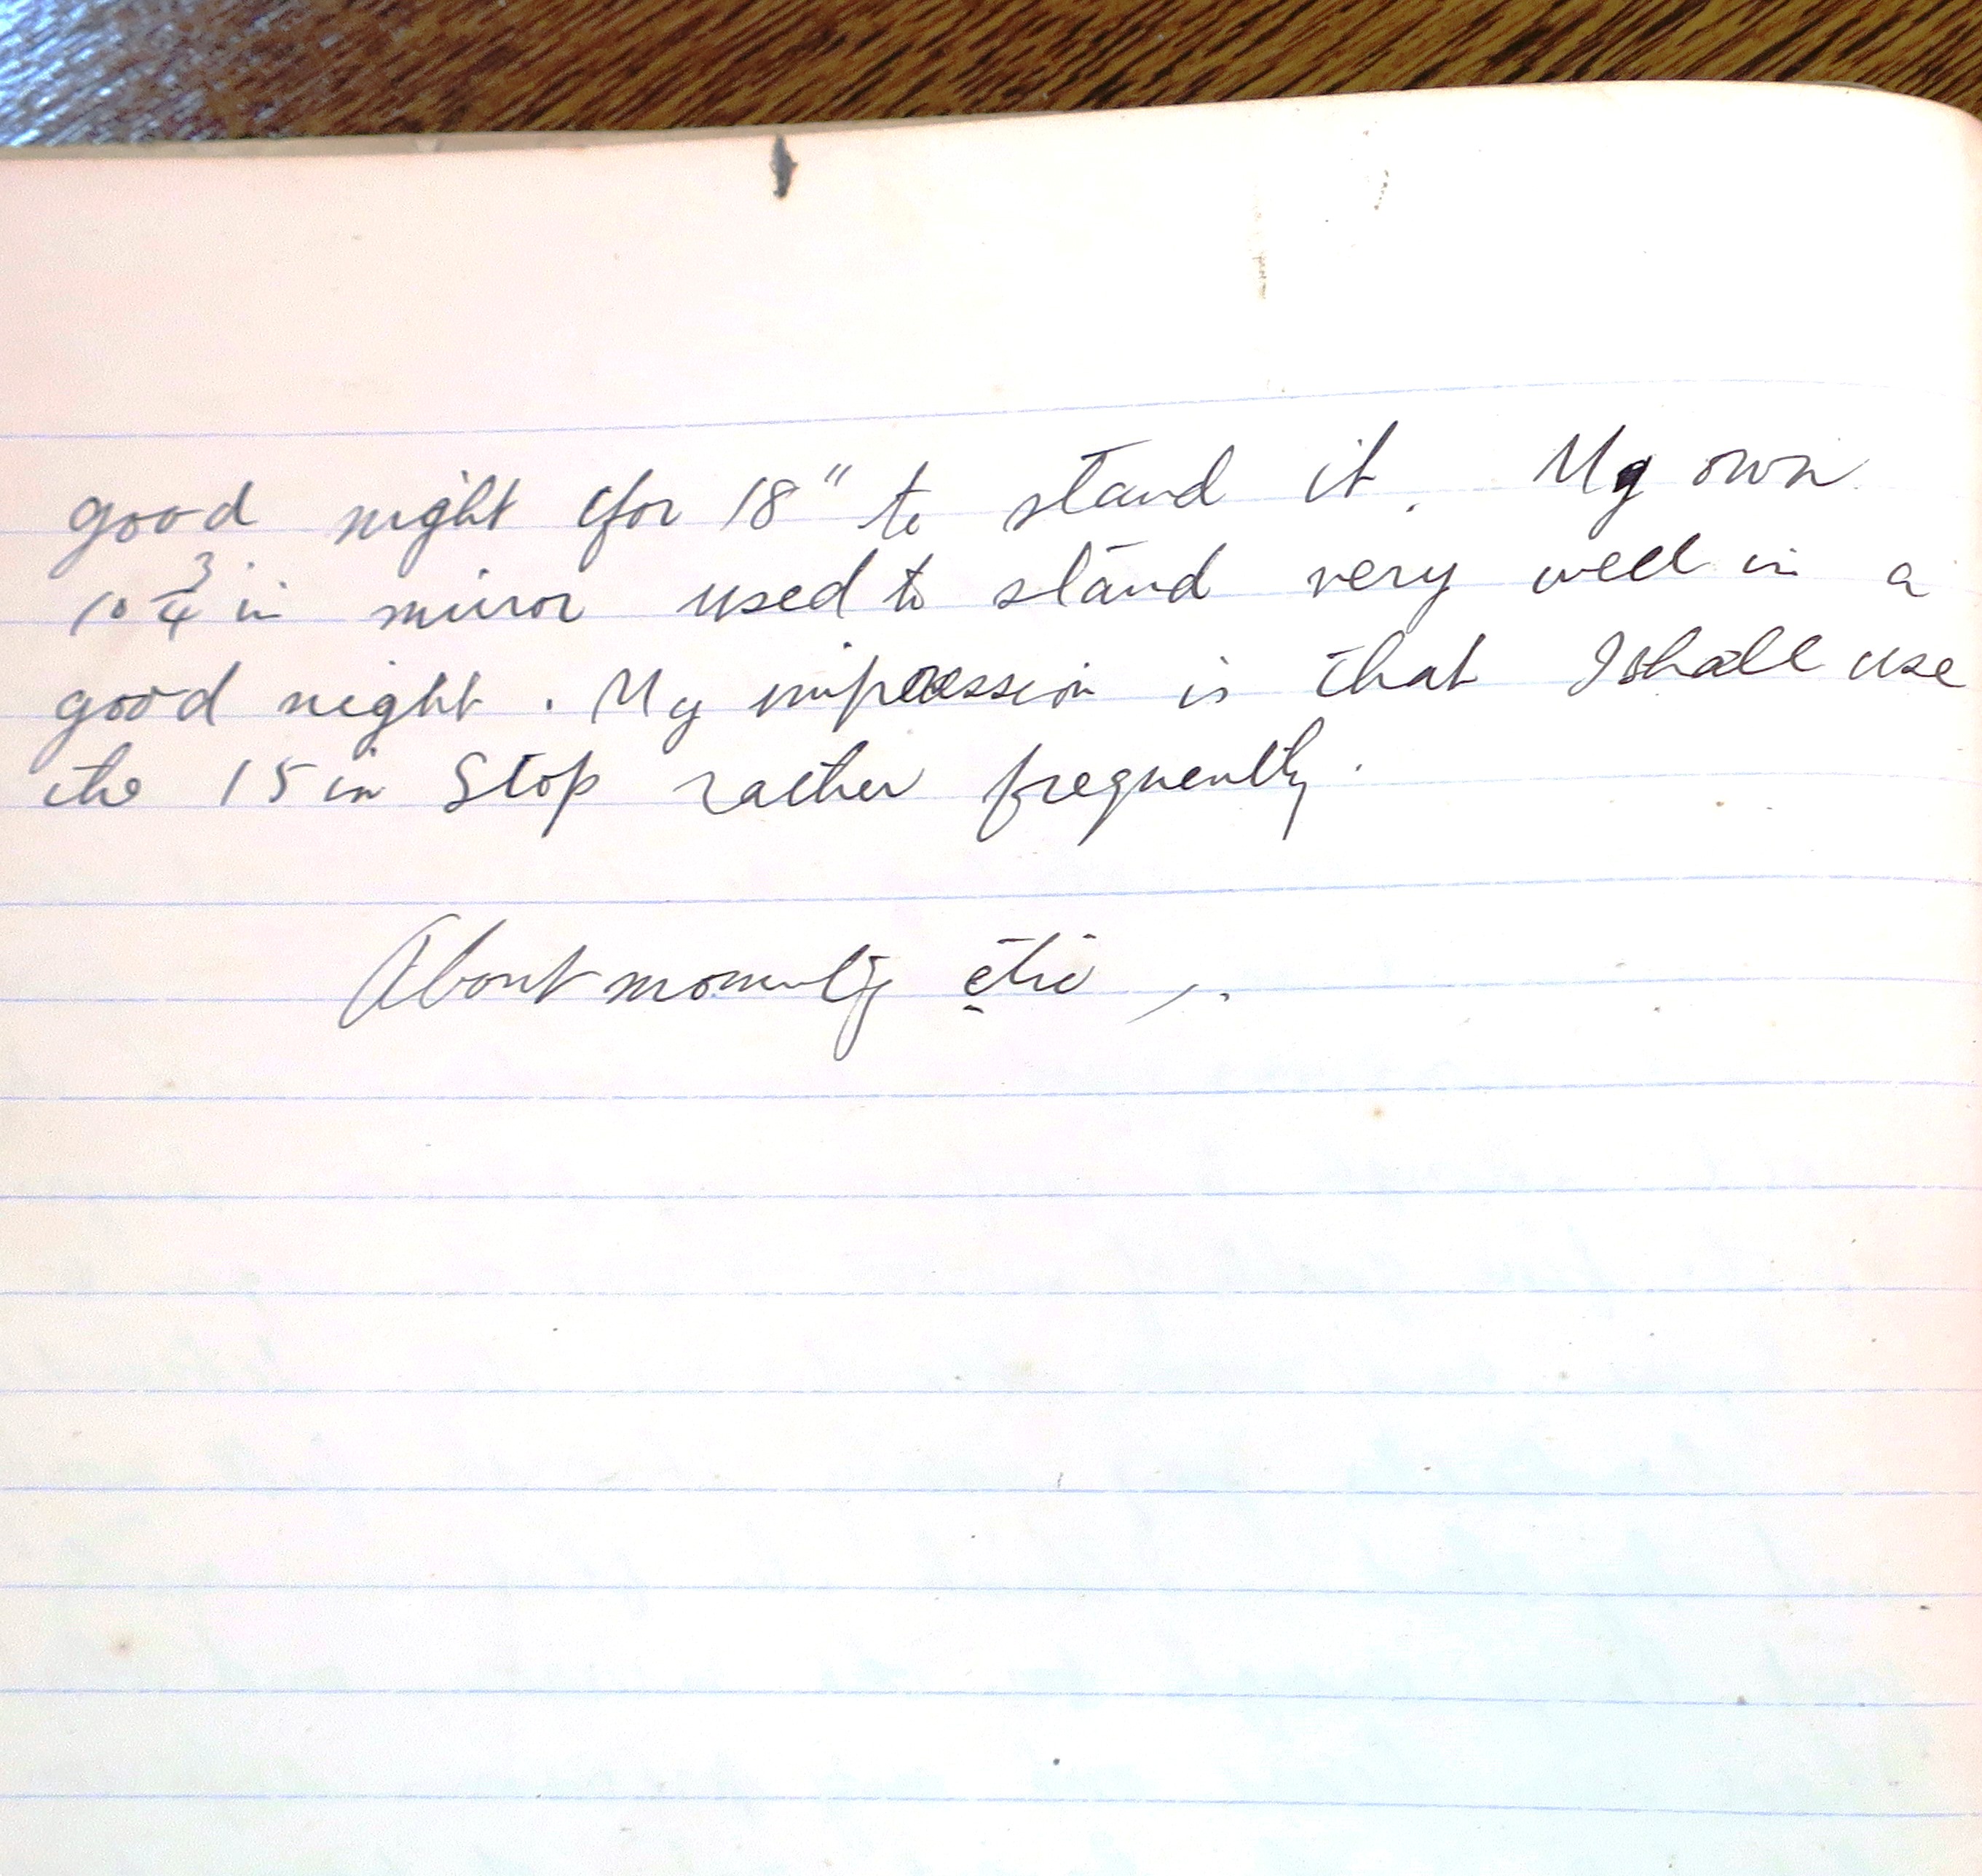 good night for 18" to stand it. My own
10 3/4 in mirror used to stand very well in a
good night. My impression is that I shall use
the 15 in Stop rather frequently.
About mounting